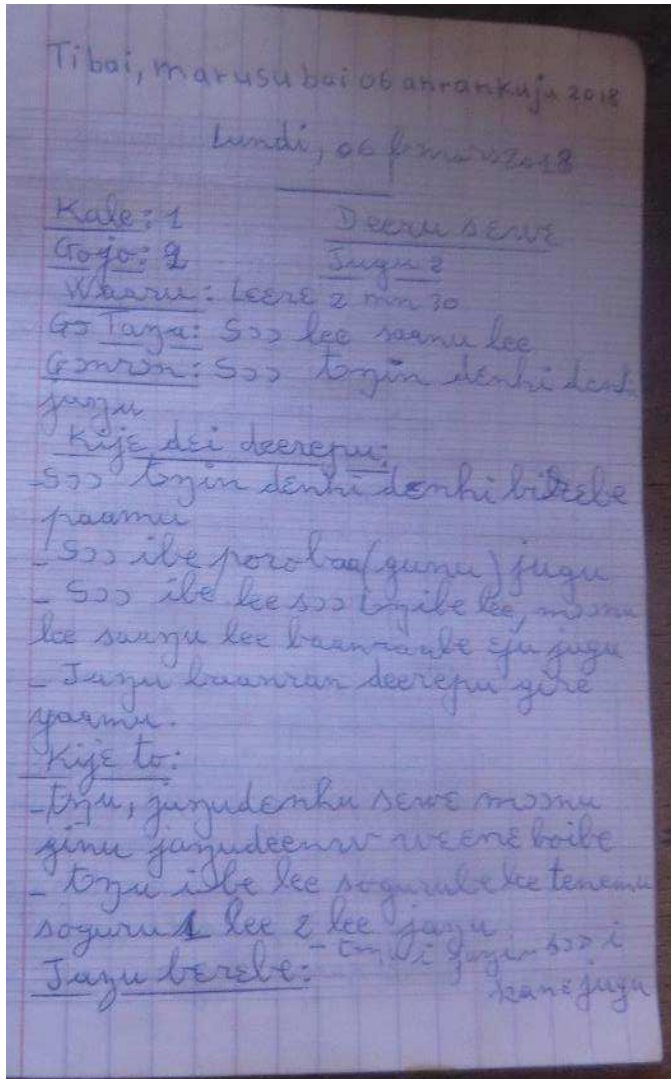 Tibai, marusu bai 06 anrankuju 2018
Lundi, 06 mars 2018
Kale: 1 Deeru sɛwɛ
Gojo: 2 Jugu 2
Waaru: Lɛɛrɛ 2 mn 30
Gɔ Taŋa: Sɔɔ lee saanu lee
Gɔnrɔn: Sɔɔ tɔŋin dɛnhi dɛnhi
jaŋu
Kijɛ dɛi deerepu:
- Sɔɔ tɔŋin dɛnhi dɛnhi
paamu
- Sɔɔ ibe porobaa (gunu) jugu
- Sɔɔ ibe lee sɔɔ lee, mɔɔnu
lee saaŋu lee jugu
- Jaŋu baanran deerepu gire
yaamu.
Kijɛ to:
- tɔŋu, jaŋudɛnhu sɛwɛ mɔɔnu
ginu wɛɛnɛ boibe
- tɔŋu ibe lee sogurube lee tenemu
soguru 1 lee 2 lee jaŋu
Jaŋu bɛrɛbe: - i sɔɔ i
kanɛ jugu